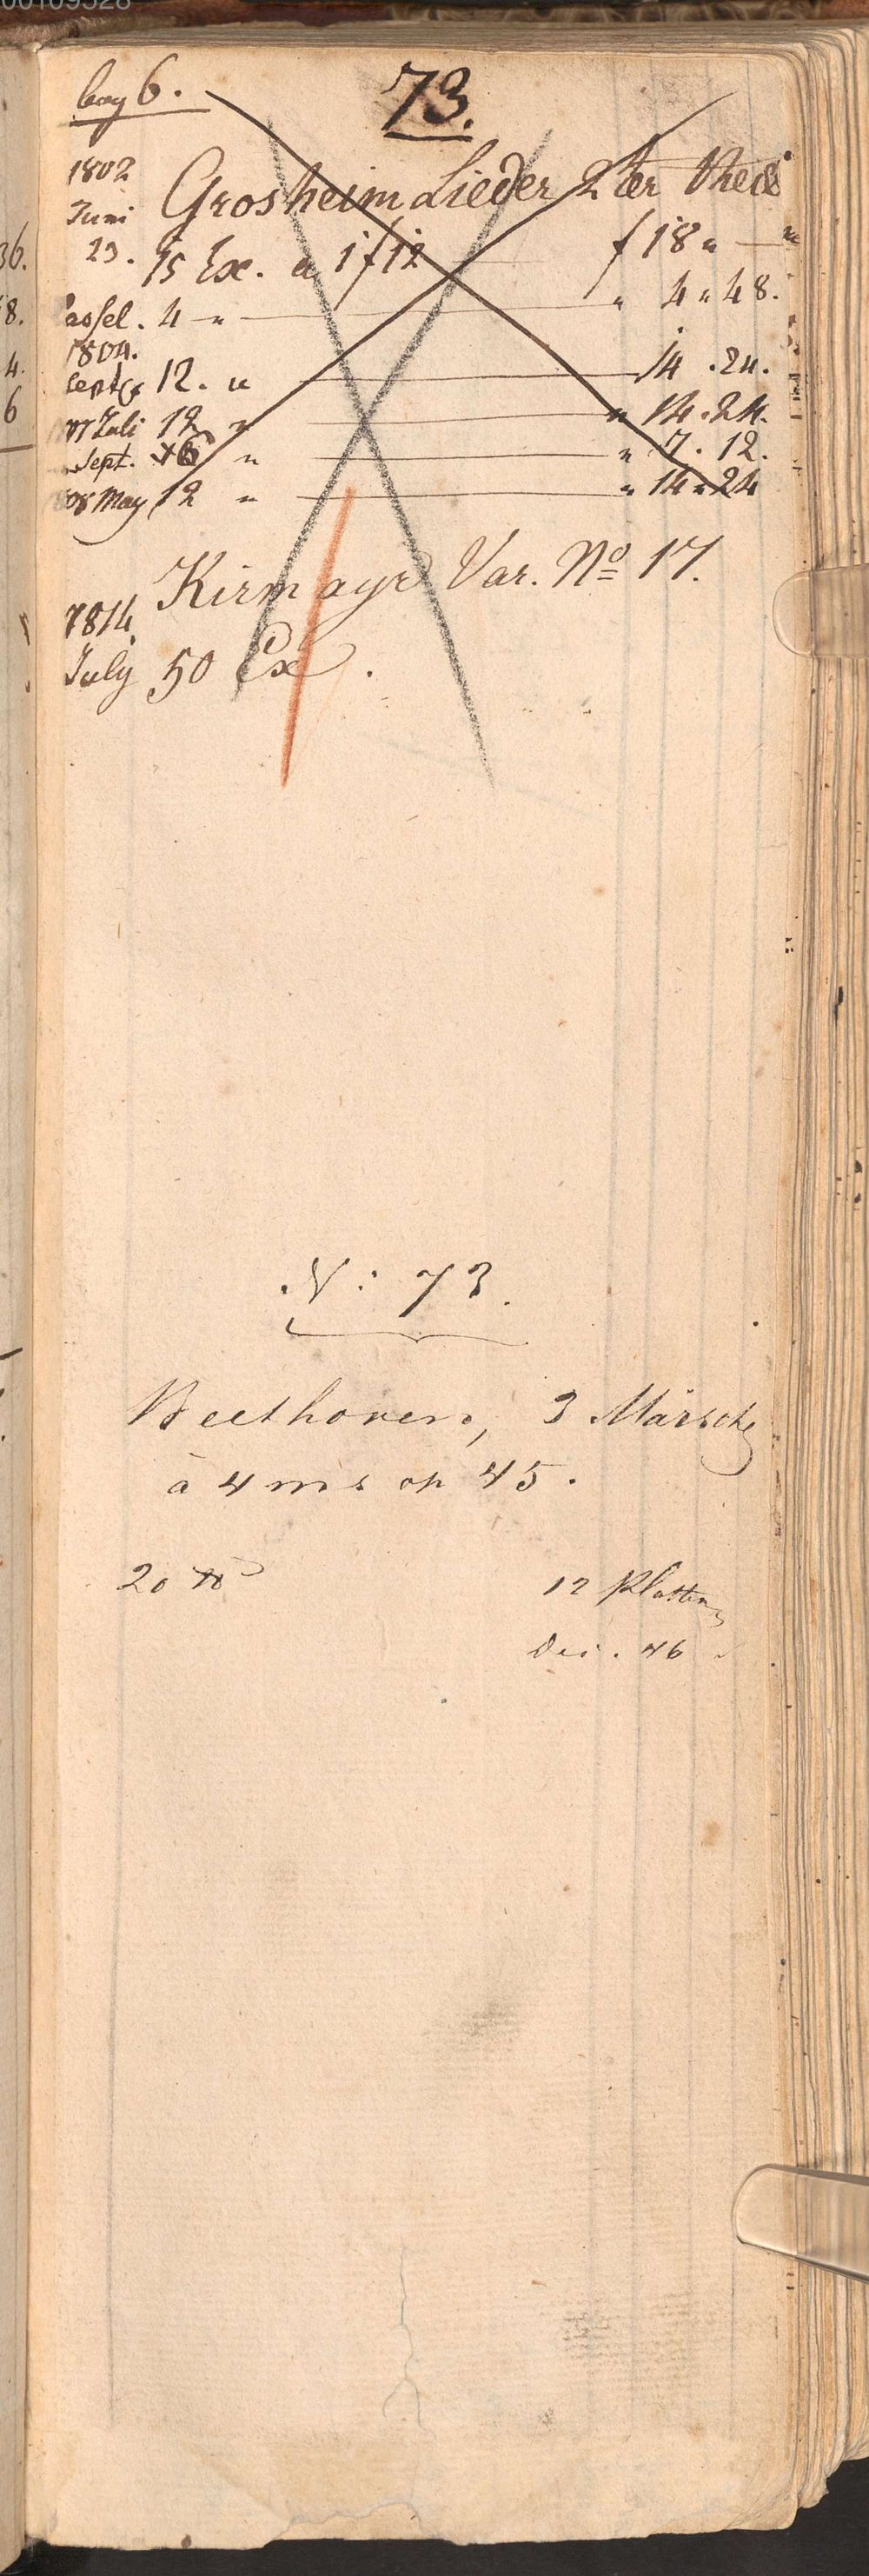 00109528
bog 6.
73.
1802 Grosheim Lieder 2ter Theil
Juni
23. 15 Ex. a 1 f 12 f 18 " — "
Cassel. 4 — " " 4 " 48.
1804.
Sept 12. " 14 . 24.
Juli 12 " " 14 . 24.
Sept. 6 " " 7 . 12.
May 12 " " 14 " 24
Kirmayr Var. No 17.
1814.
July 50 Ex.
N: 73.
Beethoven, 3 Märsche
à 4 ms op 45.
20 12 Platten
Dec. 46
36.
8.
4.
6